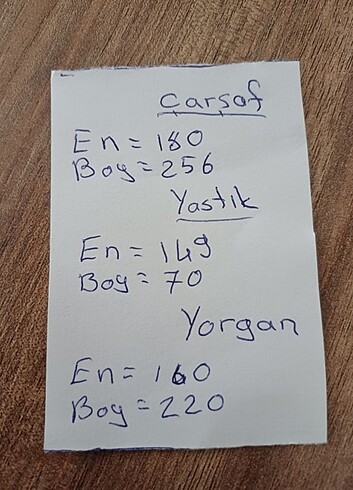 Çarşaf
En = 180
Boy = 256
Yastık
En = 149
Boy = 70
Yorgan
En = 160
Boy = 220